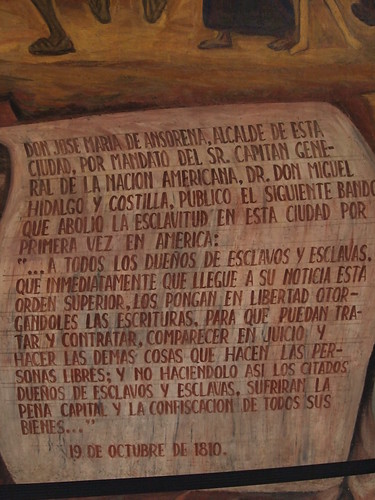 DON JOSE MARIA DE ANSORENA, ALCALDE DE ESTA
CIUDAD, POR MANDATO DEL SR. CAPITAN GENE-
RAL DE LA NACION AMERICANA, DR. DON MIGUEL
HIDALGO Y COSTILLA, PUBLICO EL SIGUIENTE BANDO
QUE ABOLIO LA ESCLAVITUD EN ESTA CIUDAD POR
PRIMERA VEZ EN AMERICA:
"...A TODOS LOS DUEÑOS DE ESCLAVOS Y ESCLAVAS,
QUE INMEDIATAMENTE QUE LLEGUE A SU NOTICIA ESTA
ORDEN SUPERIOR, LOS PONGAN EN LIBERTAD OTOR-
GANDOLES LAS ESCRITURAS, PARA QUE PUEDAN TRA-
TAR Y CONTRATAR, COMPARECER EN JUICIO Y
HACER LAS DEMAS COSAS QUE HACEN LAS PER-
SONAS LIBRES; Y NO HACIENDOLO ASI LOS CITADOS
DUEÑOS DE ESCLAVOS Y ESCLAVAS, SUFRIRAN LA
PENA CAPITAL Y LA CONFISCACION DE TODOS SUS
BIENES..."
19 DE OCTUBRE DE 1810.